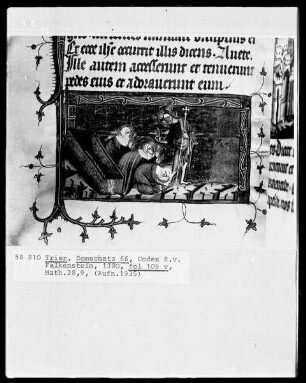 Et ecce ihesus occurrit illis dicens. Auete.
Ille autem accesserunt et tenuerunt
pedes eius et adorauerunt eum.
58 810 Trier, Domschatz 66, Codex K.v.
Falkenstein, 1380, fol 109 v,
Math.28,9, (Aufn.1935)